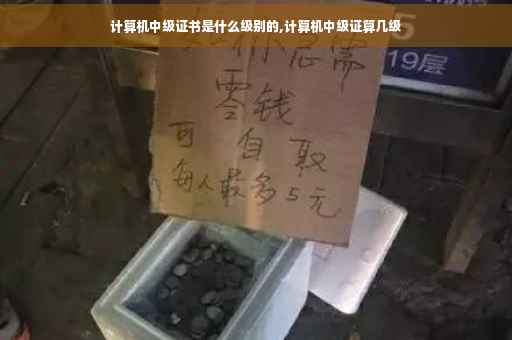 计算机中级证书是什么级别的,计算机中级证算几级
如你急需
零钱
可自取
每人最多5元
5
19层